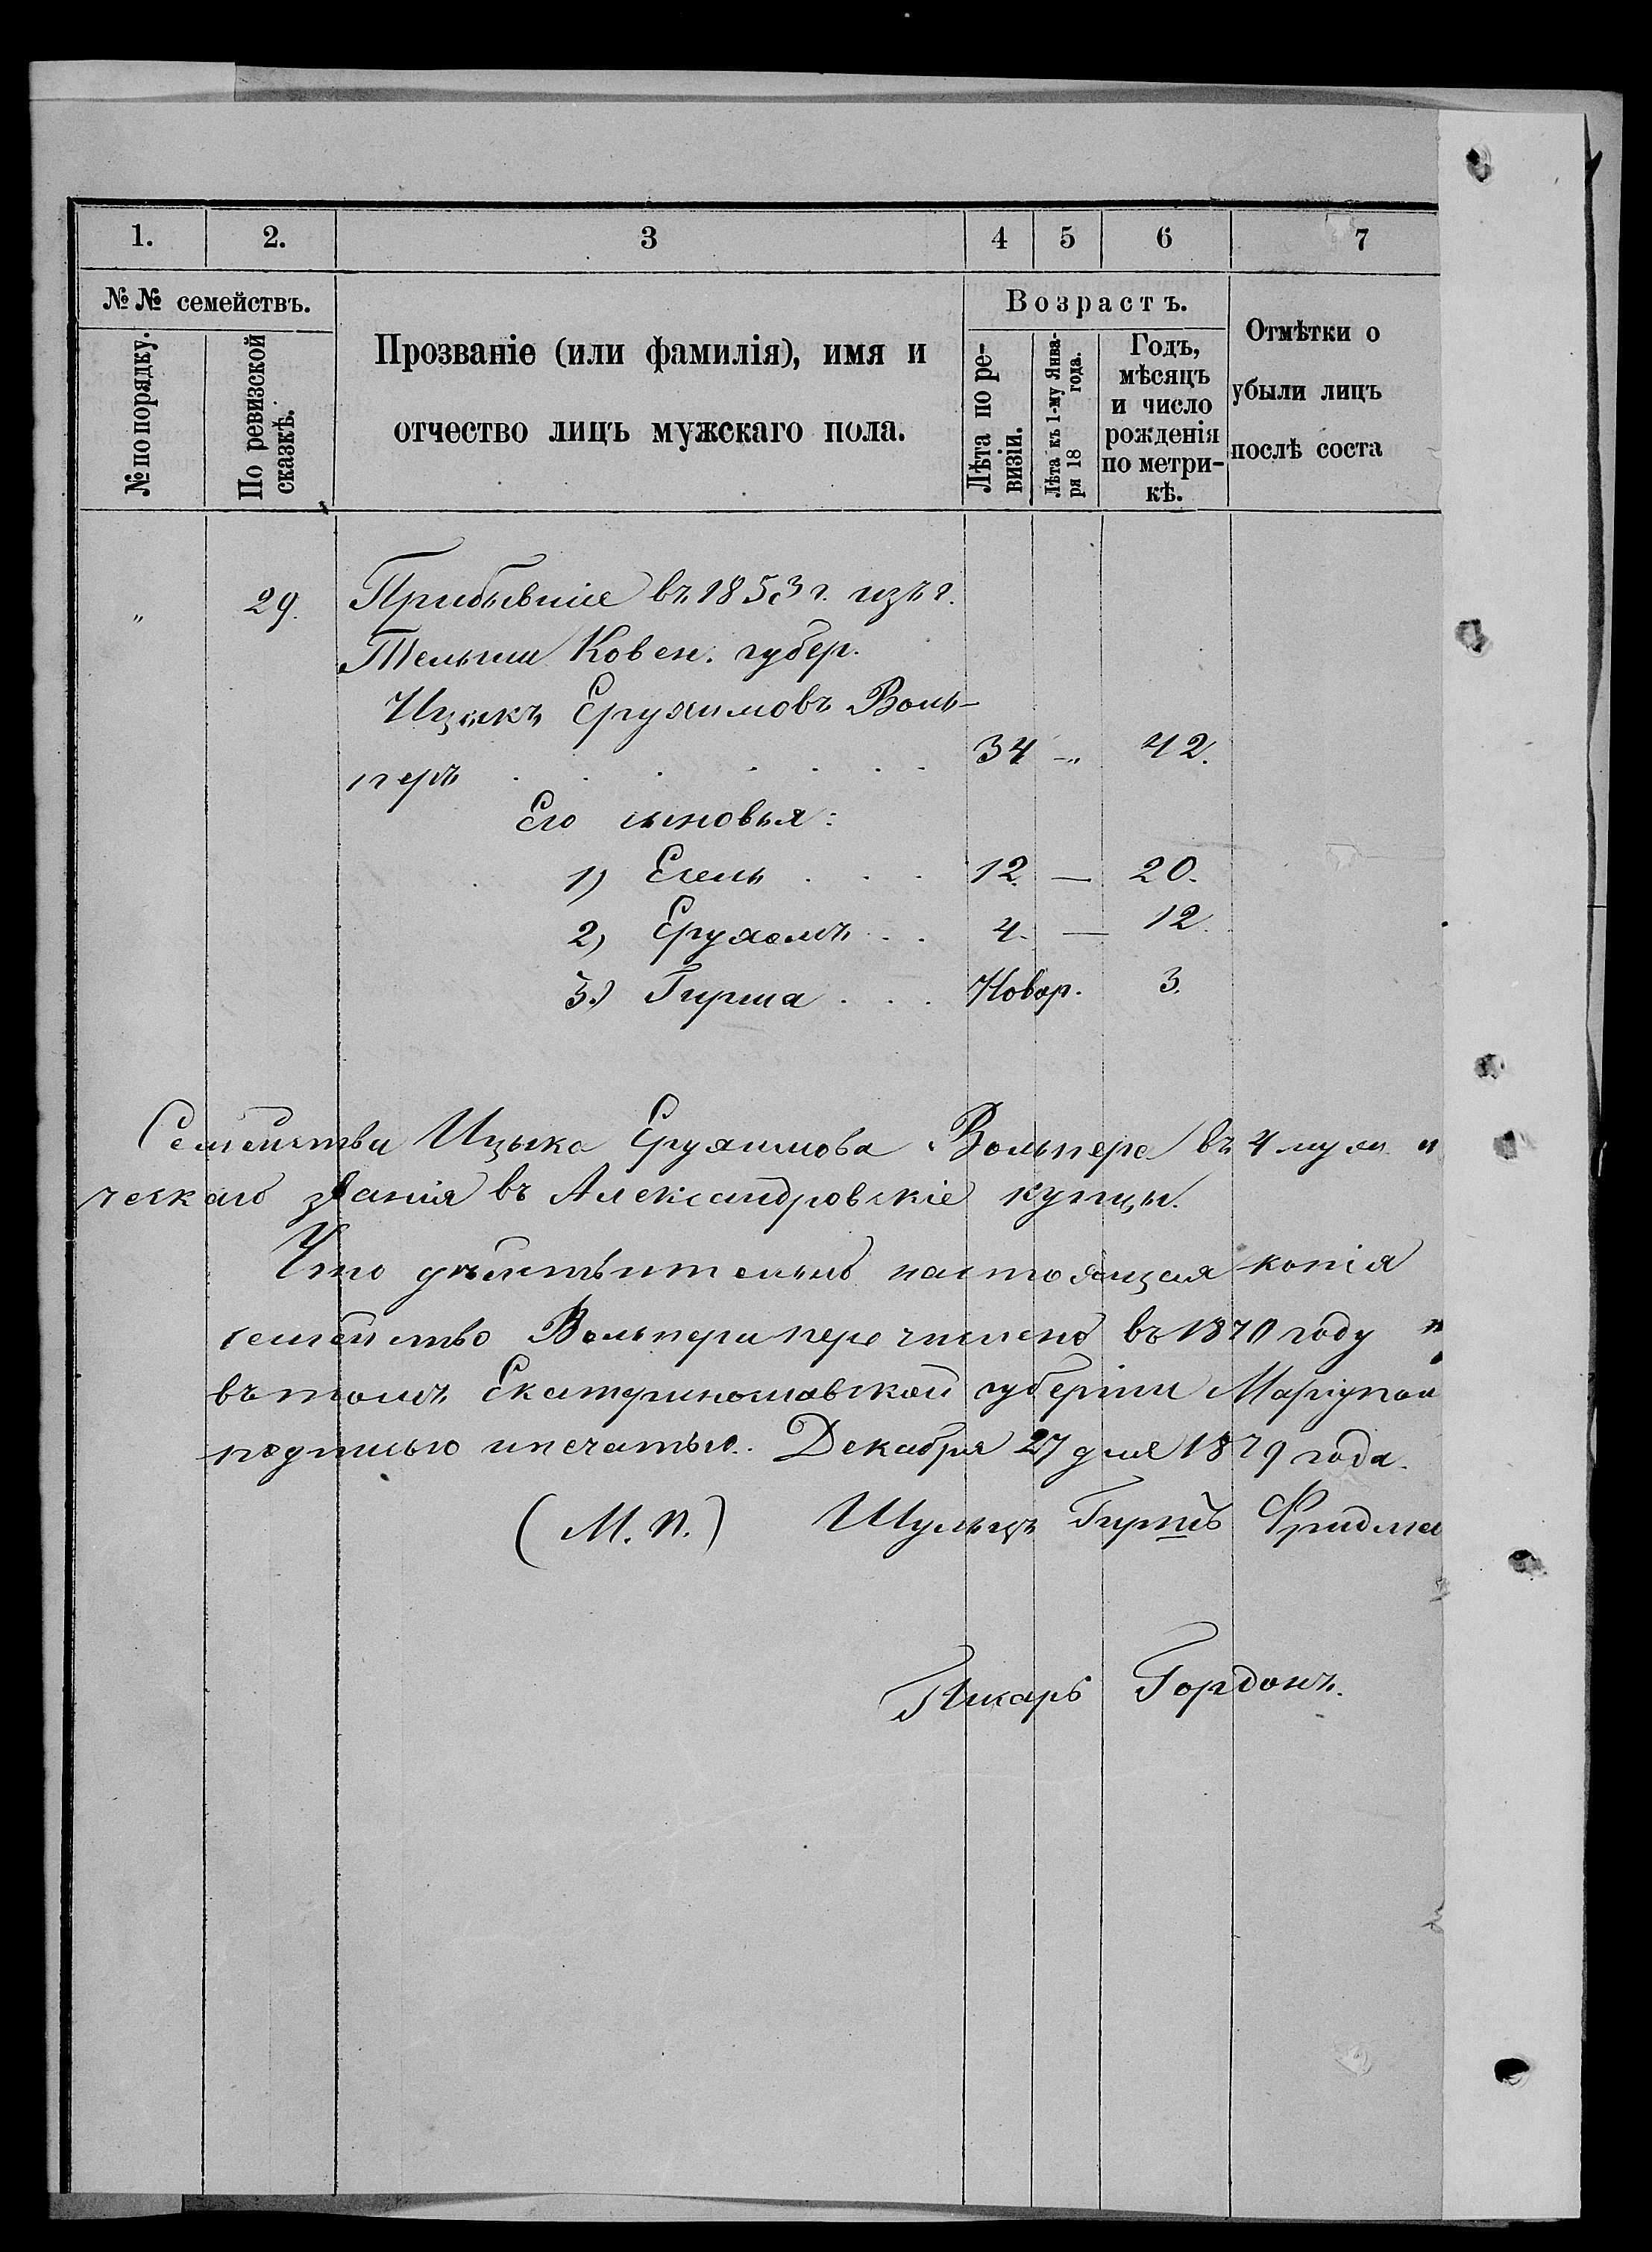 1. 2. 3 4 5 6 7
№ № семействъ.
№ по порядку.
По ревизской
сказкѣ.
Прозваніе (или фамилія), имя и
отчество лицъ мужскаго пола.
Возрастъ.
Лѣта по ре-
визіи.
Лѣта къ 1-му Янва-
ря 18 года.
Годъ,
мѣсяцъ
и число
рожденія
по метри-
кѣ.
Отмѣтки о
убыли лицъ
послѣ соста
„ 29. Прибывшіе въ 1853 г. изъ г.
Тельши Ковен. губер.
Ицыкъ Ерухимовъ Воль-
перъ . . . . . . . 34 -„ 42.
Его сыновья:
1) Есель . . . 12. — 20.
2) Ерухомъ . . 4. — 12.
3.) Гирша . . . Новор. 3.
Семейства Ицыка Ерухимова Вольпера въ 4 муж. п
ческаго званія въ Александровскіе купцы.
Что дѣйствительно настоящая копія
семейство Вольпера перечислено въ 1870 году п
въ томъ Екатеринославской губерніи Маріупол
подписью и печатью. Декабря 27 дня 1879 года.
(М. П.) Шульцъ Гиршъ Фридма
Писарь Гордонъ.